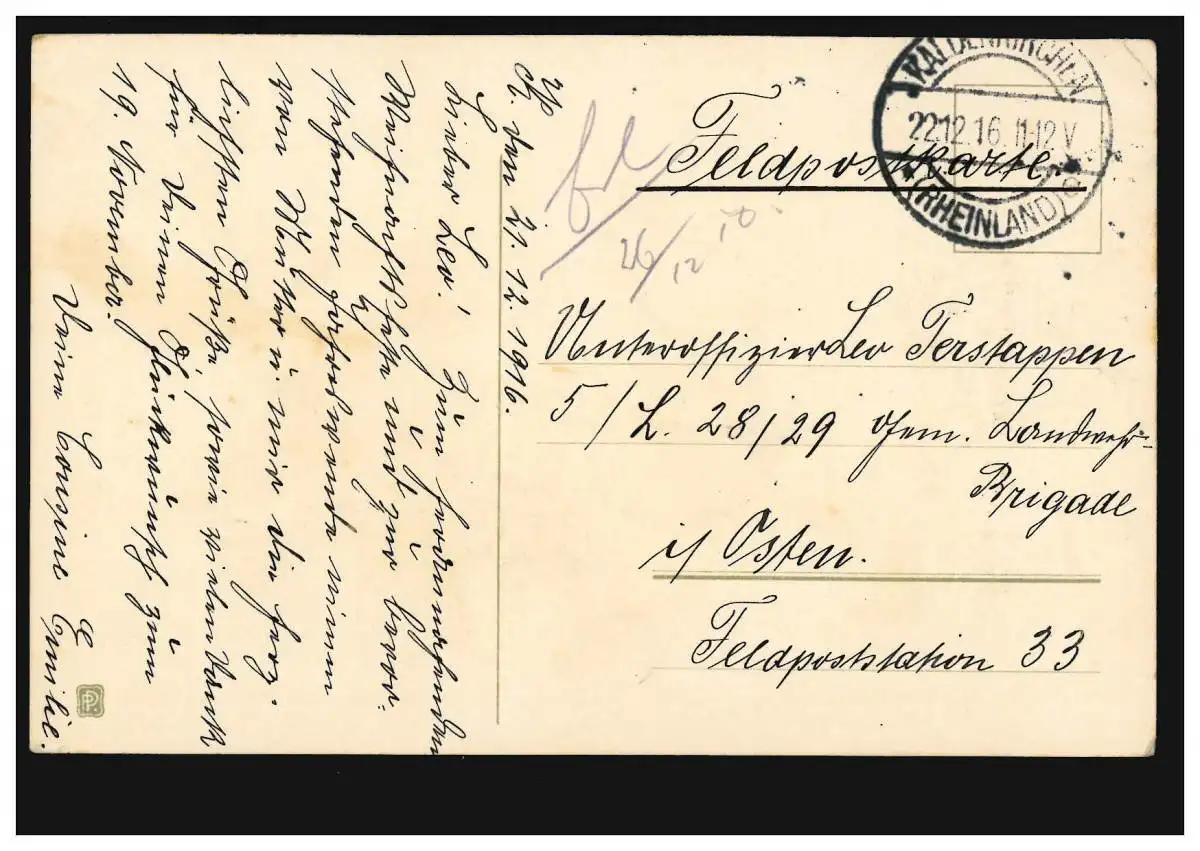 KALDENKIRCHEN
22.12.16. 11-12 V
(RHEINLAND)
Feldpostkarte.
26/12
Unteroffizier Leo Terstappen
5/L. 28/29 gem. Landwehr-
Brigade
i/ Osten.
Feldpoststation 33
den 21.12.1916.
Lieber Leo! Zum herannahenden
Weihnachtsfeste und zur bevor-
stehenden Jahreswende
von Mutter u. mir die herz-
lichsten Grüße, sowie vielen Dank
für Deinen Glückwunsch zum
19. November.
Deine Cousine Emilie.